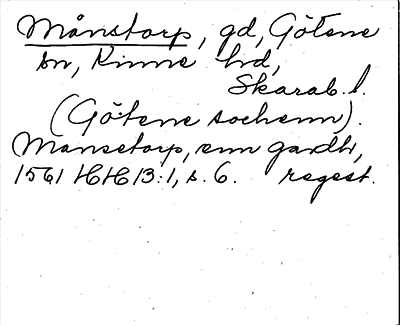 Månstorp, gd, Götene
sn, Kinne hd,
Skarab. l.
(Götene sochenn).
Manstorp, enn gardh,
1561 HH 13:1, s. 6. regest.